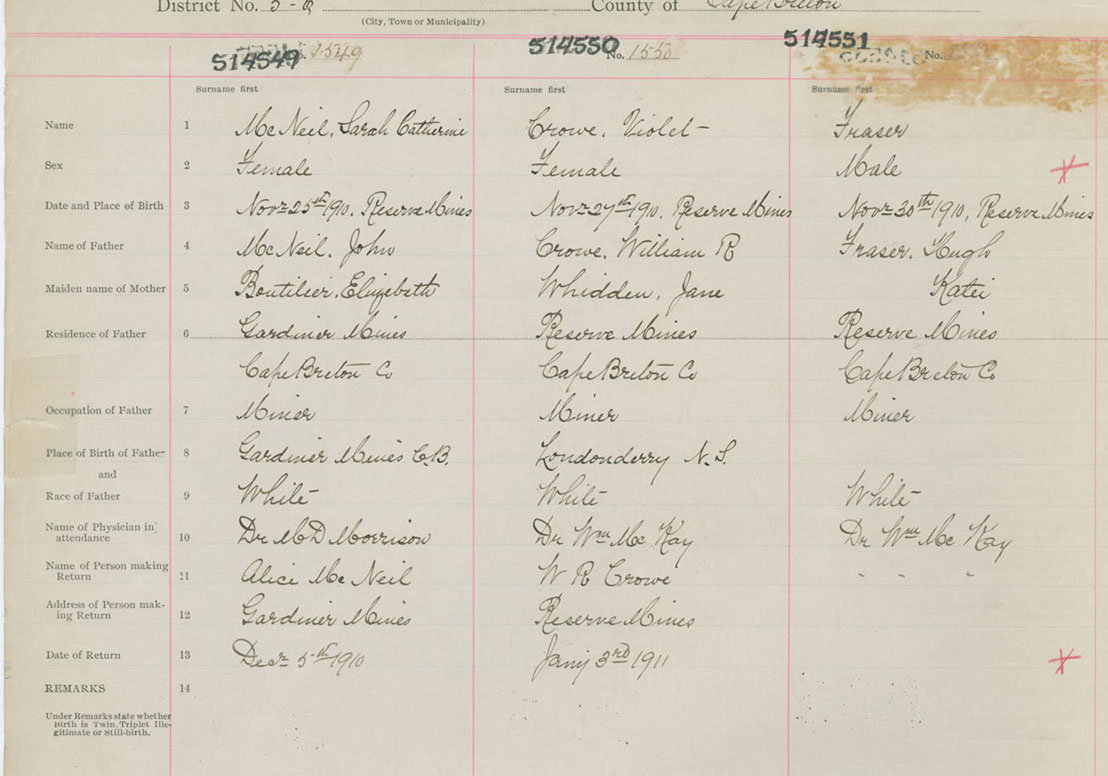 District No. 5-Q County of Cape Breton
(City, Town or Municipality)
514549 No. 1549 514550 No. 1550 514551 No.
Surname first Surname first Surname first
Name 1 McNeil, Sarah Catherine Crowe, Violet Fraser
Sex 2 Female Female Male
Date and Place of Birth 3 Novr 25th 1910, Reserve Mines Novr 27th 1910, Reserve Mines Novr 30th 1910, Reserve Mines
Name of Father 4 McNeil, John Crowe, William R Fraser, Hugh
Maiden name of Mother 5 Boutilier, Elizabeth Whidden, Jane Katie
Residence of Father 6 Gardiner Mines Reserve Mines Reserve Mines
Cape Breton Co Cape Breton Co Cape Breton Co
Occupation of Father 7 Miner Miner Miner
Place of Birth of Father 8 Gardiner Mines C.B. Londonderry N.S.
and
Race of Father 9 White White White
Name of Physician in
attendance 10 Dr M D Morrison Dr Wm McKay Dr Wm McKay
Name of Person making
Return 11 Alice McNeil W R Crowe " " "
Address of Person mak-
ing Return 12 Gardiner Mines Reserve Mines
Date of Return 13 Decr 5th 1910 Jany 3rd 1911
REMARKS 14
Under Remarks state whether
Birth is Twin, Triplet Ille-
gitimate or Still-birth.